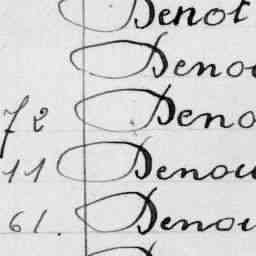 Denot
Denou
72 Deno
11 Denou
61. Denou